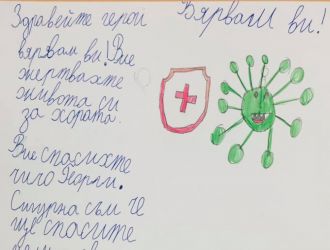 Здравейте герои
вярвам ви! Вие
жертвахте
живота си
за хората.
Вие спасихте
чичо Георги.
Сигурна съм че
ще спасите
Вярвам ви!